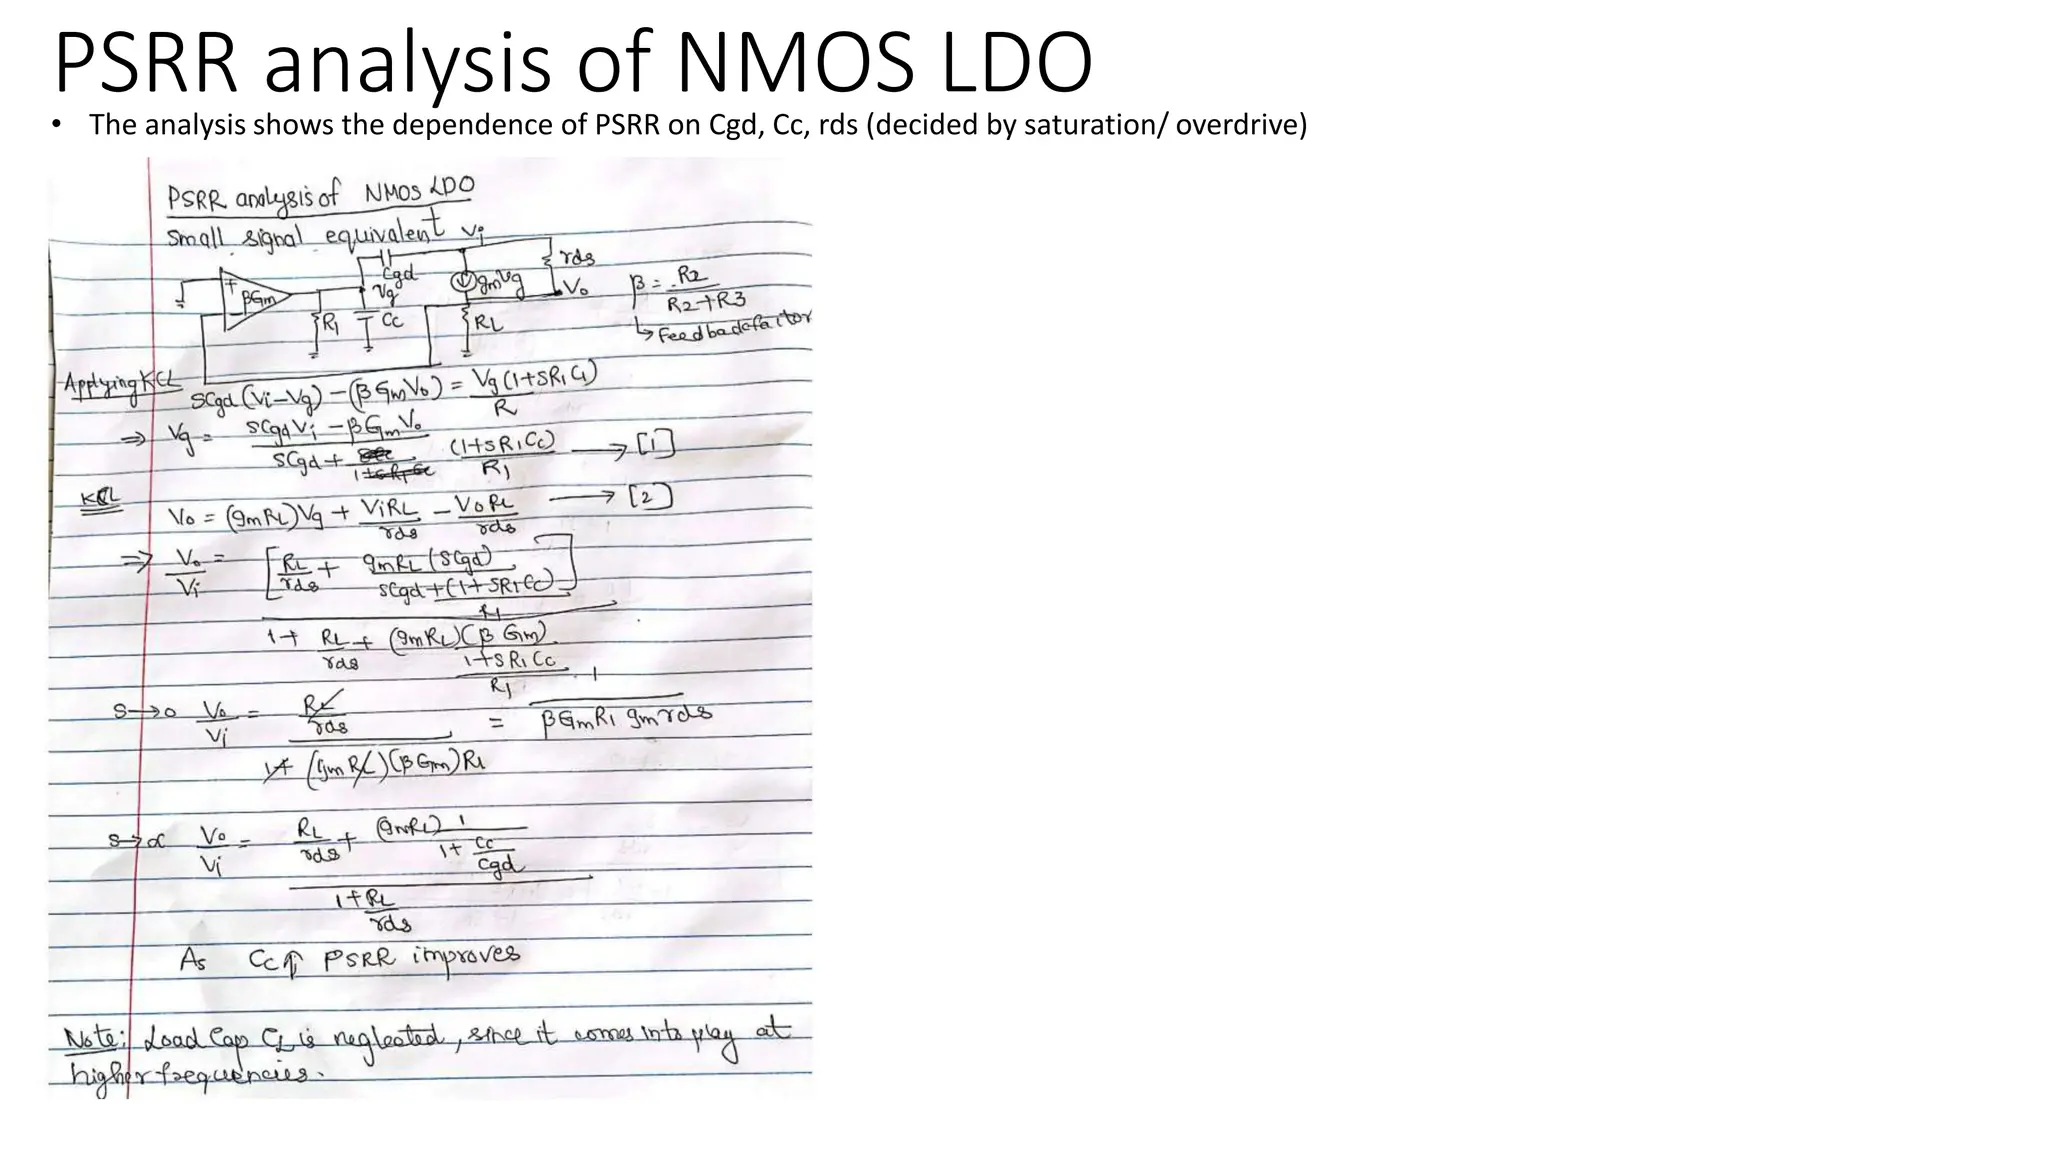 PSRR analysis of NMOS LDO
• The analysis shows the dependence of PSRR on Cgd, Cc, rds (decided by saturation/ overdrive)
PSRR analysis of NMOS LDO
Small signal equivalent Vi
rds
Cgd
+ βGm Vg gmVg Vo
R1 Cc RL
β = R2 / (R2+R3)
↳ Feedback factor
Applying KCL
SCgd (Vi-Vg) - (βGmVo) = Vg(1+SR1C1) / R
⇒ Vg = (SCgdVi - βGmVo) / (SCgd + (1+SR1Cc)/R1) → [1]
KCL
Vo = (gmRL)Vg + ViRL/rds - VoRL/rds → [2]
⇒ Vo/Vi = [RL/rds + gmRL(SCgd) / (SCgd + (1+SR1Cc)/R1)]
1 + RL/rds + (gmRL)(βGm) / ((1+SR1Cc)/R1)
S→0 Vo/Vi = (RL/rds) / (1+(gmRL)(βGm)R1) = 1 / (βGmR1 gmrds)
S→∝ Vo/Vi = (RL/rds + (gmRL) 1/(1+Cc/Cgd)) / (1+RL/rds)
As Cc⇑ PSRR improves
Note: Load Cap CL is neglected, since it comes into play at
higher frequencies.